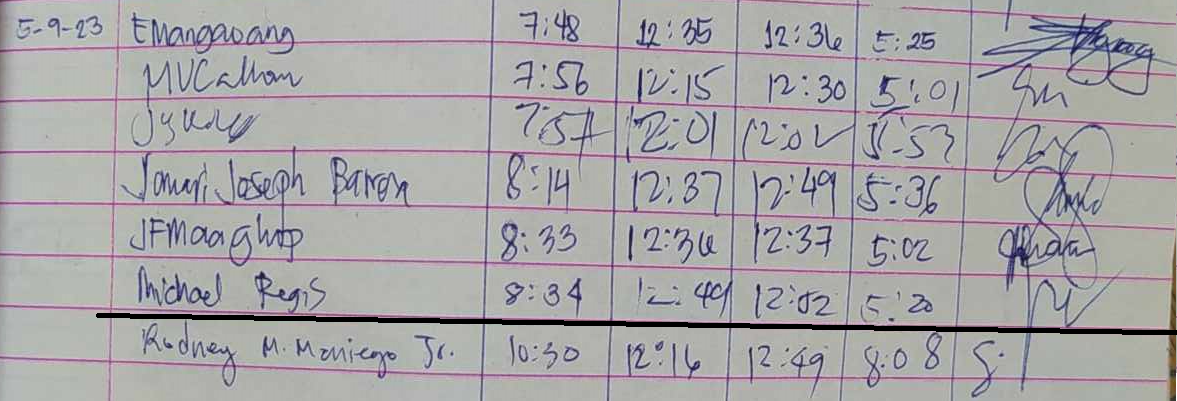 5-9-23 EMangaoang 7:48 12:35 12:36 5:25
MVCalhan 7:56 12:15 12:30 5:01
7:57 12:01 12:02 5:53
Jomari Joseph Barron 8:14 12:37 12:49 5:36
JFMaaghop 8:33 12:36 12:37 5:02
Michael Regis 8:34 12:49 12:52 5:20
Rodney M. Moniego Jr. 10:30 12:16 12:49 8:08